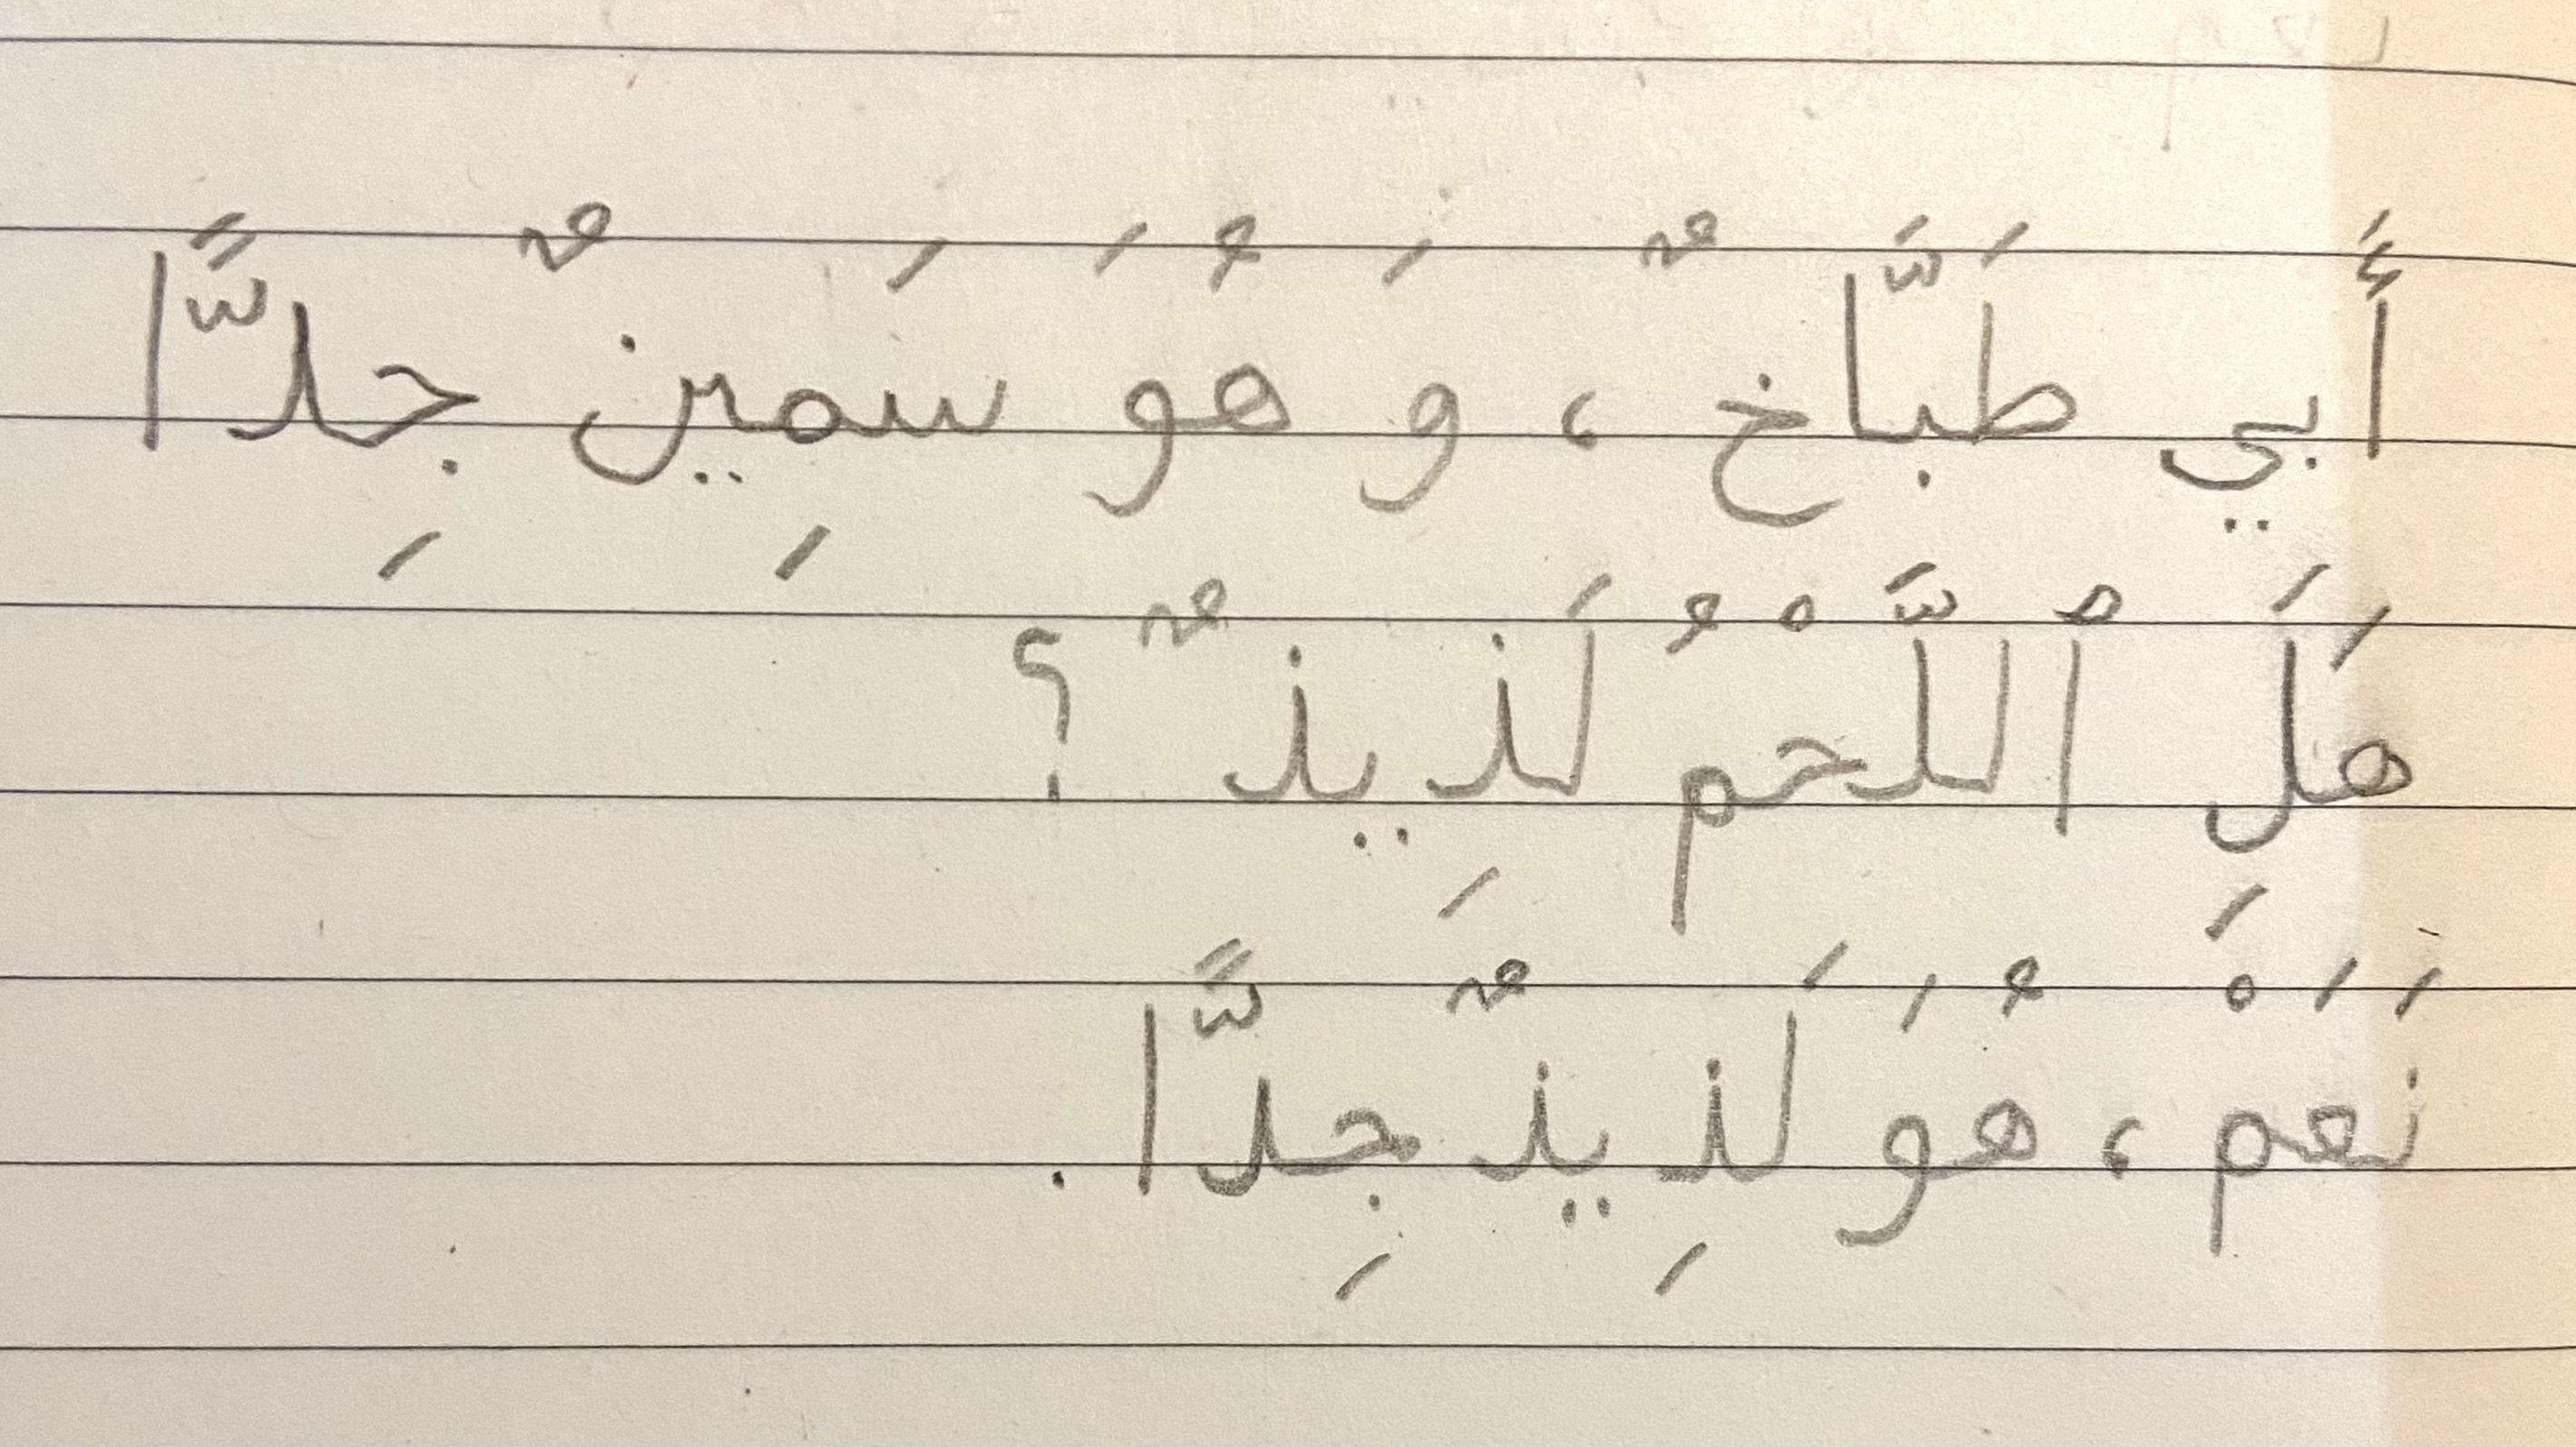 أَبي طَبَّاخٌ، وَ هُوَ سَمِينٌ جِدًّا
هَلِ ٱللَّحْمُ لَذِيذٌ؟
نَعَمْ، هُوَ لَذِيذٌ جِدًّا.